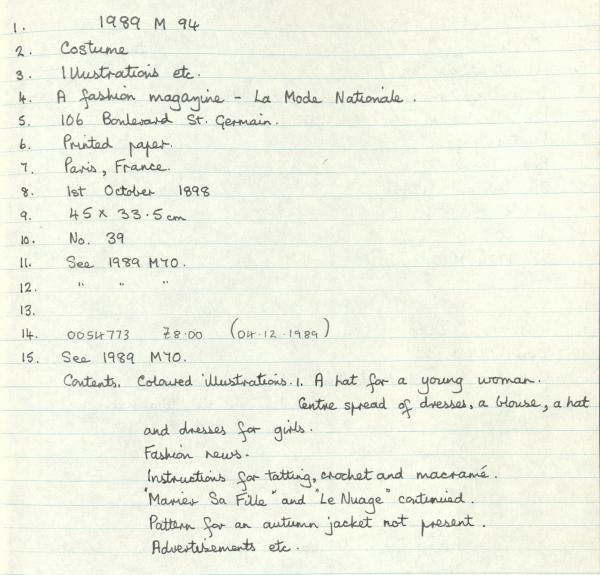 1. 1989 M 94
2. Costume
3. Illustrations etc.
4. A fashion magazine - La Mode Nationale.
5. 106 Boulevard St. Germain.
6. Printed paper.
7. Paris, France.
8. 1st October 1898
9. 45 x 33.5 cm
10. No. 39
11. See 1989 M70.
12. " " "
13.
14. 0054773 £8.00 (04.12.1989)
15. See 1989 M70.
Contents. Coloured illustrations. 1. A hat for a young woman.
Centre spread of dresses, a blouse, a hat
and dresses for girls.
Fashion news.
Instructions for tatting, crochet and macramé.
"Marier Sa Fille" and "Le Nuage" continued.
Pattern for an autumn jacket not present.
Advertisements etc.